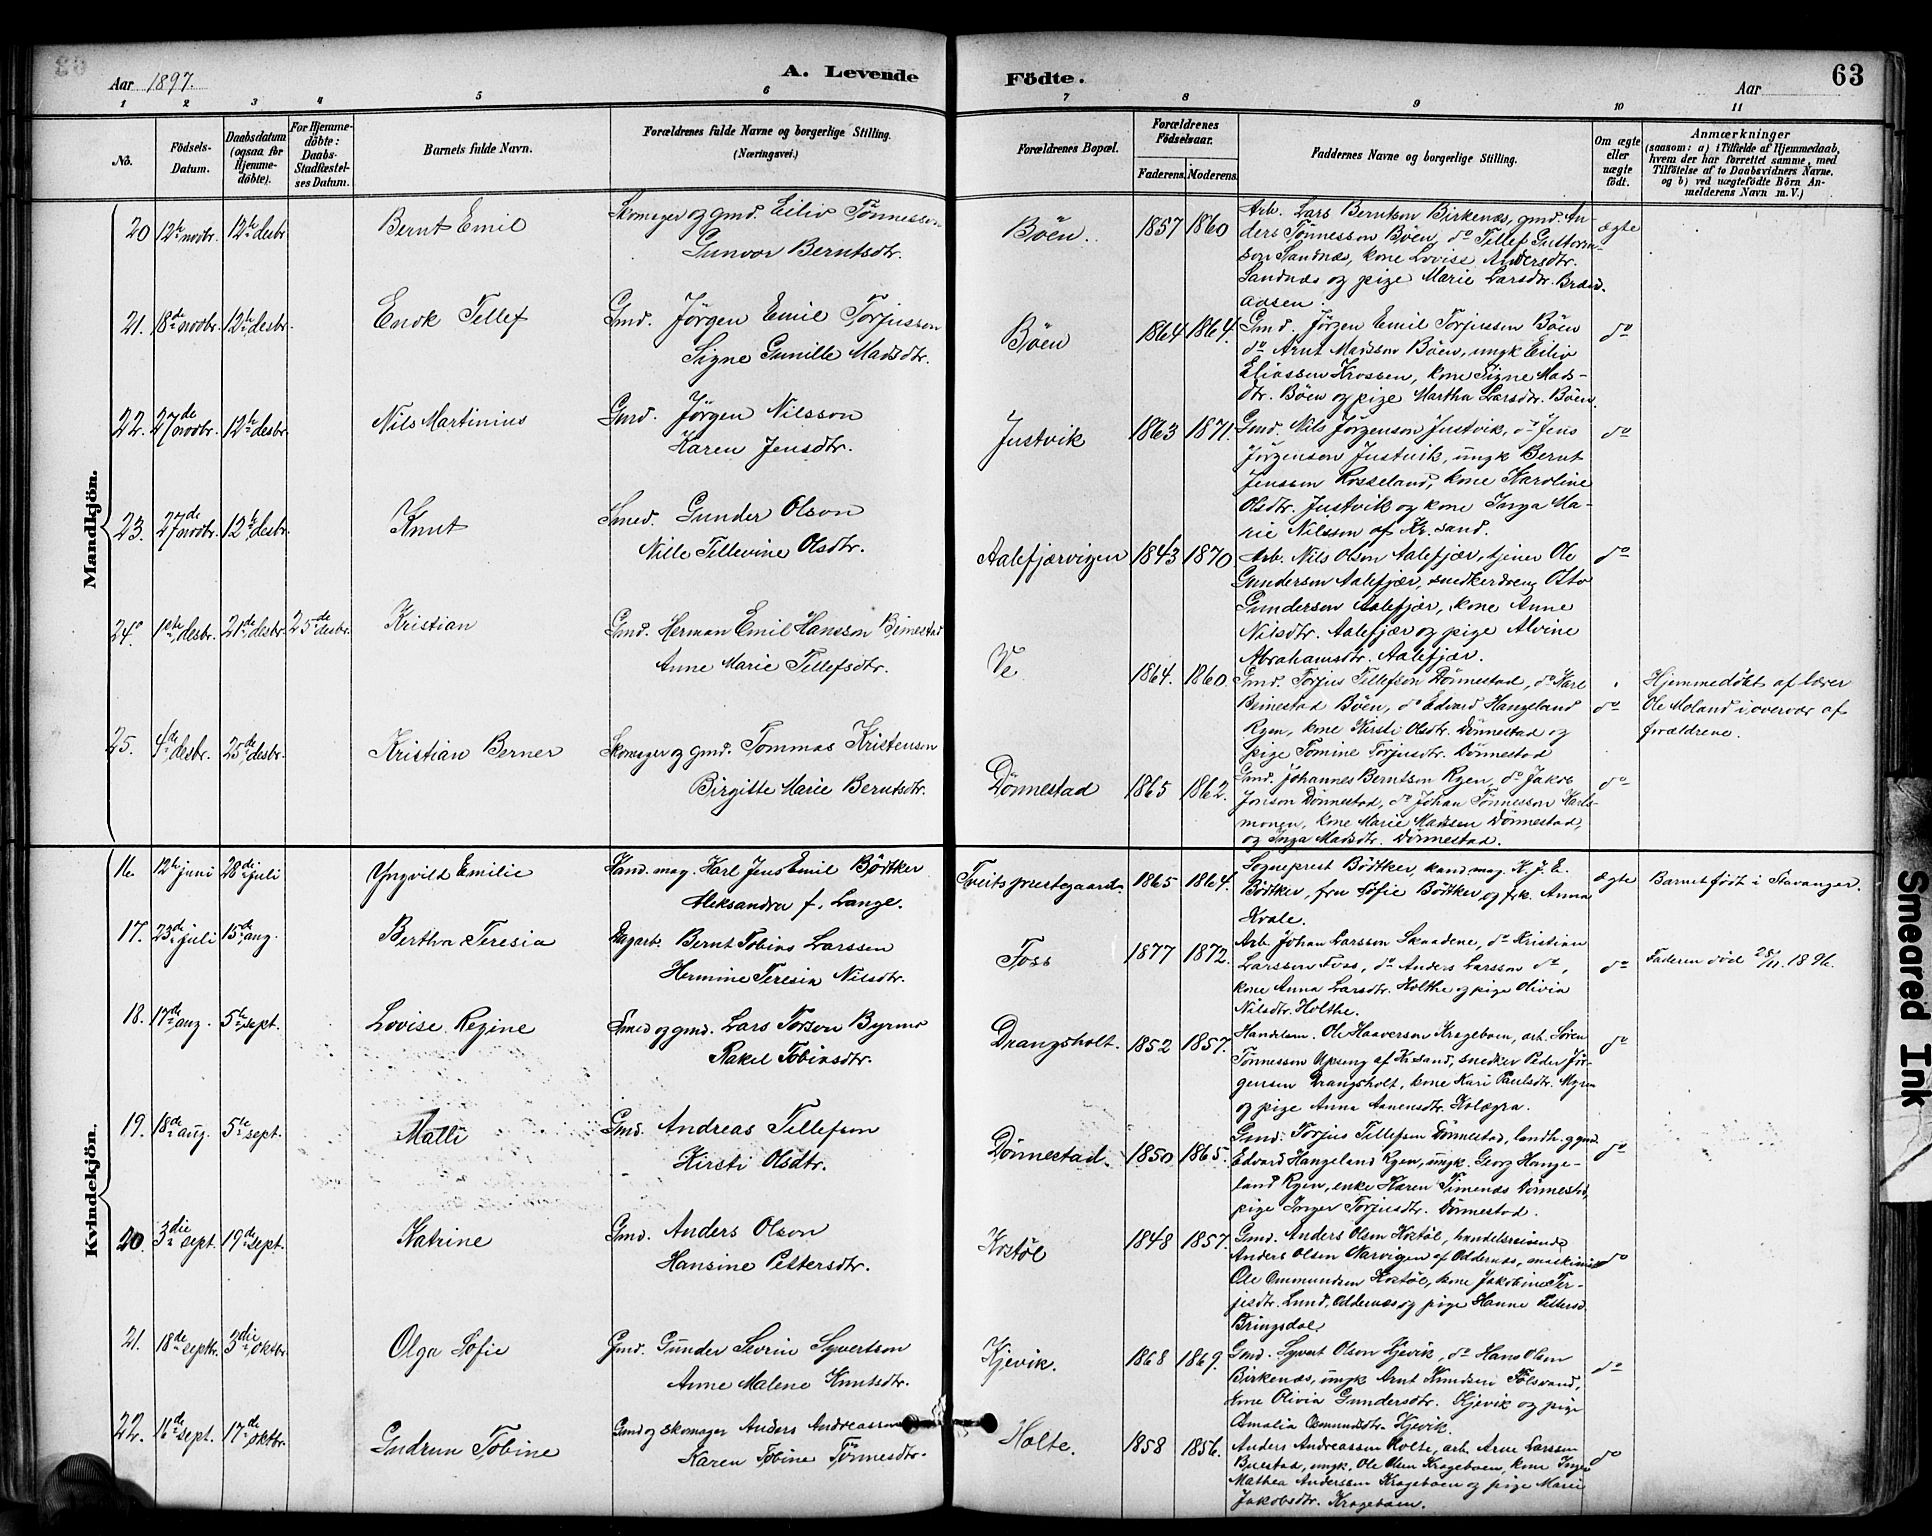 Aar 1897.
A. Levende
Födte.
Aar
63
1 2 3 4 5 6 7 8 9 10 11
No.
Födsels-Datum.
Daabsdatum (ogsaa för Hjemme-döbte).
For Hjemme-döbte: Daabs-Stadfæstel-ses Datum.
Barnets fulde Navn.
Forældrenes fulde Navne og borgerlige Stilling. (Næringsvei.)
Forældrenes Bopæl.
Forældrenes Födselsaar.
Faderens. Moderens.
Faddernes Navne og borgerlige Stilling.
Om ægte eller uægte födt.
Anmærkninger
(saasom: a) i Tilfælde af Hjemmedaab, hvem der har forrettet samme, med Tilföielse af to Daabsvidners Navne, og b) ved uægtefödte Börn An-melderens Navn m. V.)
Mandkjön.
20 12te novbr. 12te desbr. Bernt Emil
Skomager og gmd. Eiliv Tönnesson
Gunvor Berntsdtr.
Böen. 1857 1860
Arb. Lars Berntson Birkenæs, gmd. An-
ders Tönnesson Böen, do Tellef Guttorm-
son Sandnæs, kone Lovise Andersdtr.
Sandnæs og pige Marie Larsdtr. Bræd-
aasen.
ægte
21. 18de novbr. 12te desbr. Enok Tellef
Gmd. Jørgen Emil Torjusson
Signe Gunille Madsdtr.
Böen 1864 1864.
Gmd. Jørgen Emil Torjussen Böen
do Arnt Madsson Böen, ungk Eiliv
Eliassen Krossen, kone Signe Mads-
dtr. Böen og pige Martha Larsdtr. Böen.
do
22. 27de novbr. 12te desbr. Nils Martinius
Gmd. Jørgen Nilsson
Karen Jensdtr.
Justvik 1863 1871.
Gmd. Nils Jørgenson Justvik, do Jens
Jørgenson Justvik, ungk Bernt
Jenssen Rosseland, kone Karoline
Olsdtr. Justvik og kone Inga Ma-
rie Nilsson af Kr.sand.
do
23. 27de novbr. 12te desbr. Knut
Smed. Gunder Olson
Nille Tellevine Olsdtr.
Aalefjærvigen 1843 1870
Arb. Nils Olson Aalefjær, tjener Ole
Gunderson Aalefjær, snedkerdreng Otto
Gunderson Aalefjær, kone Anne
Nilsdtr. Aalefjær og pige Alvine
Abrahamsdtr. Aalefjær.
do
24. 1ste desbr. 21de desbr. 25de desbr. Kristian
Gmd. Herman Emil Hansson Beimestad
Anne Marie Tellefsdtr.
Ve 1864. 1860.
Gmd. Torjus Tellefson Dönnestad, do Karl
Beinestad Böen, do Edvard Hangeland
Ryen, kone Kirsti Olsdtr. Dönnestad og
pige Tomine Torjusdtr. Dönnestad
do
Hjemmedøbt af lærer
Ole Moland i overvær af
forældrene.
25. 4de desbr. 25de desbr. Kristian Berner
Skomager og gmd. Tommas Kristenson
Birgitte Marie Berntsdtr.
Dönnestad 1865 1862.
Gmd. Johannes Berntson Ryen, do Jakob
Jonson Dönnestad, do Johan Tönnesson Karls-
monen, kone Marie Madssen Dönnestad,
og Inga Madsdtr. Dönnestad.
do
Kvindekjön.
16 12te juni 28de juli Yngvild Emilie
Kand. mag. Karl Jens Emil Bödtker
Aleksandra f. Lange.
Tveits prestegaard. 1865 1864.
Sogneprest Bödtker, kand. mag. K. J. E.
Bödtker, fru Sofie Bödtker og frk. Anna
Krale.
ægte
Barnet født i Stavanger.
17. 23de juli 15de aug. Bertha Teresia
Dagarb. Bernt Tobias Larssen
Hermine Teresia Nilsdtr.
Foss 1877 1872.
Arb. Johan Larsson Skaadene, do Kristian
Larssen Foss, do Anders Larsson do,
kone Anna Larsdtr. Holthe og pige Olivia
Nilsdtr. Holthe.
do
Faderen död 25/11 1896.
18. 17de aug. 5te sept. Lovise Regine
Smed og gmd. Lars Torson Byrmo
Rakel Tobiasdtr.
Drangsholt. 1852 1857.
Handelsm. Ole Haaverson Krageboen, arb. Søren
Tønnesson Upsung af Kr.sand, snedker Peder Jør-
gensen Drangsholt, kone Kari Paulsdtr. Myra
og pige Anna Aanensdtr. Kolægra.
do
19. 18de aug. 5te sept. Malli
Gmd. Andreas Tellefsen
Kirsti Olsdtr.
Dönnestad. 1850 1865.
Gmd. Torjus Tellefsen Dönnestad, landh. og gmd
Edvard Hangeland Ryen, ungk. Georg Hange-
land Ryen, enke Karen Simenæs Dönnestad,
pige Inger Torjusdtr. Dönnestad.
do
20. 3die sept. 19de sept. Katrine
Gmd. Anders Olson
Hansine Pettersdtr.
Kostöl 1848 1857.
Gmd. Anders Olsen Kostöl, handelsreisende
Anders Olsen Narvigen af Oddernæs, maskinist
Ole Ommundsen Kostöl, kone Jakobine Ter-
jesdtr. Lund, Oddernæs og pige Hanne Pettersd.
Bringsdal.
do
21. 18de septbr. 3die oktbr. Olga Sofie
Gmd. Gunder Severin Syvertson
Anne Malene Knutsdtr.
Kjevik. 1868 1869.
Gmd. Syvert Olson Kjevik, do Hans Olsen
Birkenæs, ungk Arnt Knudsen Fölsvand,
kone Olivia Gundersdtr. Kjevik og pige
Amalia Osmundsdtr. Kjevik.
do
22. 16de sept. 17de oktbr. Gudrun Tobine
Gmd og skomager Anders Andreassen
Karen Tobine Tönnesdtr.
Holte. 1858 1856.
Anders Andreassen Holte, arb. Arne Larssen
Buestad, ungk. Ole Olsen Krageboen, kone Inger
Mathea Anderssen Krageboen og pige Marie
Jakobsdtr. Krageboen.
do
Smeared Ink